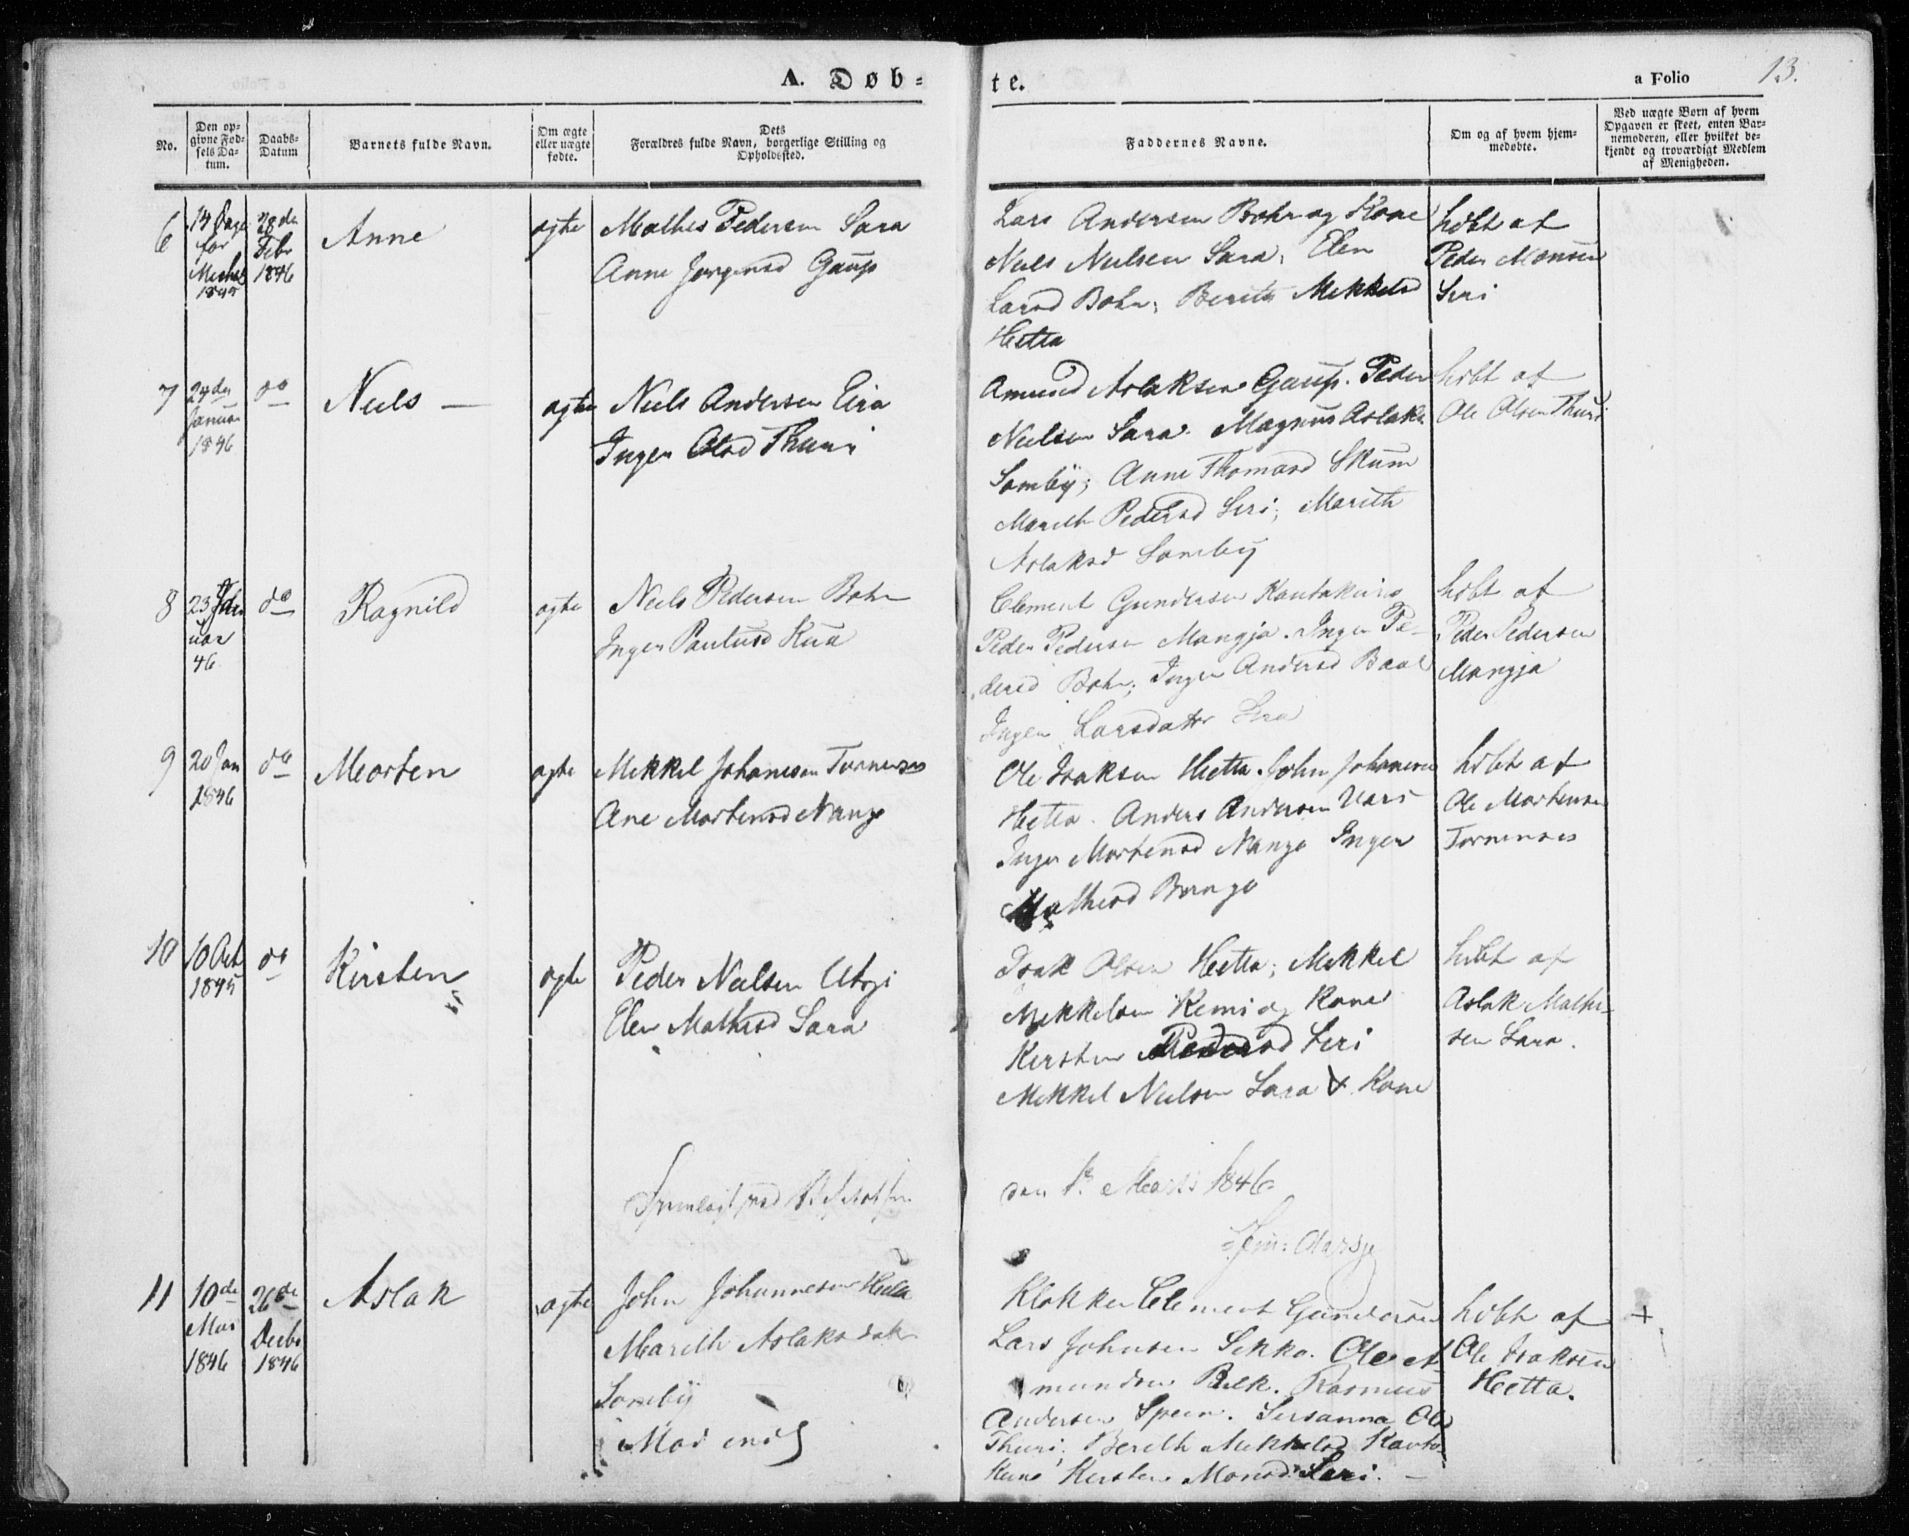 A. Døb-
te.
a Folio 13.
No.
Den op-
givne Fød-
sels Da-
tum.
Daabs-
Datum
Barnets fulde Navn.
Om ægte
eller uægte
fødte.
Dets
Forældres fulde Navn, borgerlige Stilling og
Opholdssted.
Faddernes Navne.
Om og af hvem hjem-
medøbte.
Ved uægte Børn af hvem
Opgaven er skeet, enten Bar-
nemoderen, eller hvilket be-
kjendt og troværdigt Medlem
af Menigheden.
6
14 Dage
før
1845
28de
Febr
1846
Anne
ægte
Mathis Pedersen Sara
Anne Jørgensd Gaup
Lars Andersen Bohn og Kone
Niels Nielsen Sara; Elen
Larsd Bohn; Berith Mekkelsd
Hetta
hdbt af
Peder Monsen
Siri
7
24de
Januar
1846
do
Niels —
ægte
Niels Andersen Eira
Inger Olsd Thuri
Amund Aslaksen Gaup. Peder
Nielsen Sara. Magnus Aslaks.
Somby; Anne Thomasd Skum
Marith Pedersd Siri; Marith
Aslaksd Somby
hdbt af
Ole Olsen Thuri
8
23 Jan
uar
46
do
Ragnild
ægte
Niels Pedersen Bohn
Inger Paulusd Kua
Clement Gundersen Kautokeino
Peder Pedersen Mangja. Inger Pe-
dersd Bohn; Inger Andersd Baal
Inger Larsdatter
hdbt af
Peder Pedersen
Mangja
9
20 Jan
1846
do
Morten
ægte
Mekkel Johannesen Tornensis
Ane Mortensd Nango
Ole Isaksen Hetta. John Johannesen
Hetta. Anders Andersen Vars
Inger Mortensd Nango Inger
Mathisd Bongo
hdbt af
Ole Mortensen
Tornensis
10
10 Oct
1845
do
Kirsten
ægte
Peder Nielsen Utsi
Elen Mathisd Sara
Isak Olsen Hetta; Mekkel
Mekkelsen Kemi og Kone
Kirsten Pedersd Siri
Mekkel Nielsen Sara & Kone
hdbt af
Aslak Mathi-
sen Sara.
den 1. Marts 1846
11
10de
Mai
1846
26de
Decbr
1846
Aslak
ægte
John Johannesen Hetta
Marith Aslaksdatter
Somby
Klokker Clement Gundersen
Lars Johnsen Sikko. Ole A-
mundsen Buk. Rasmus
Andersen Spein. Susanna Ols
Thuri; Berith Mekkelsd Kauto-
keino Kirsten Monsd Siri. —
hdbt af
Ole Isaksen
Hetta.
+